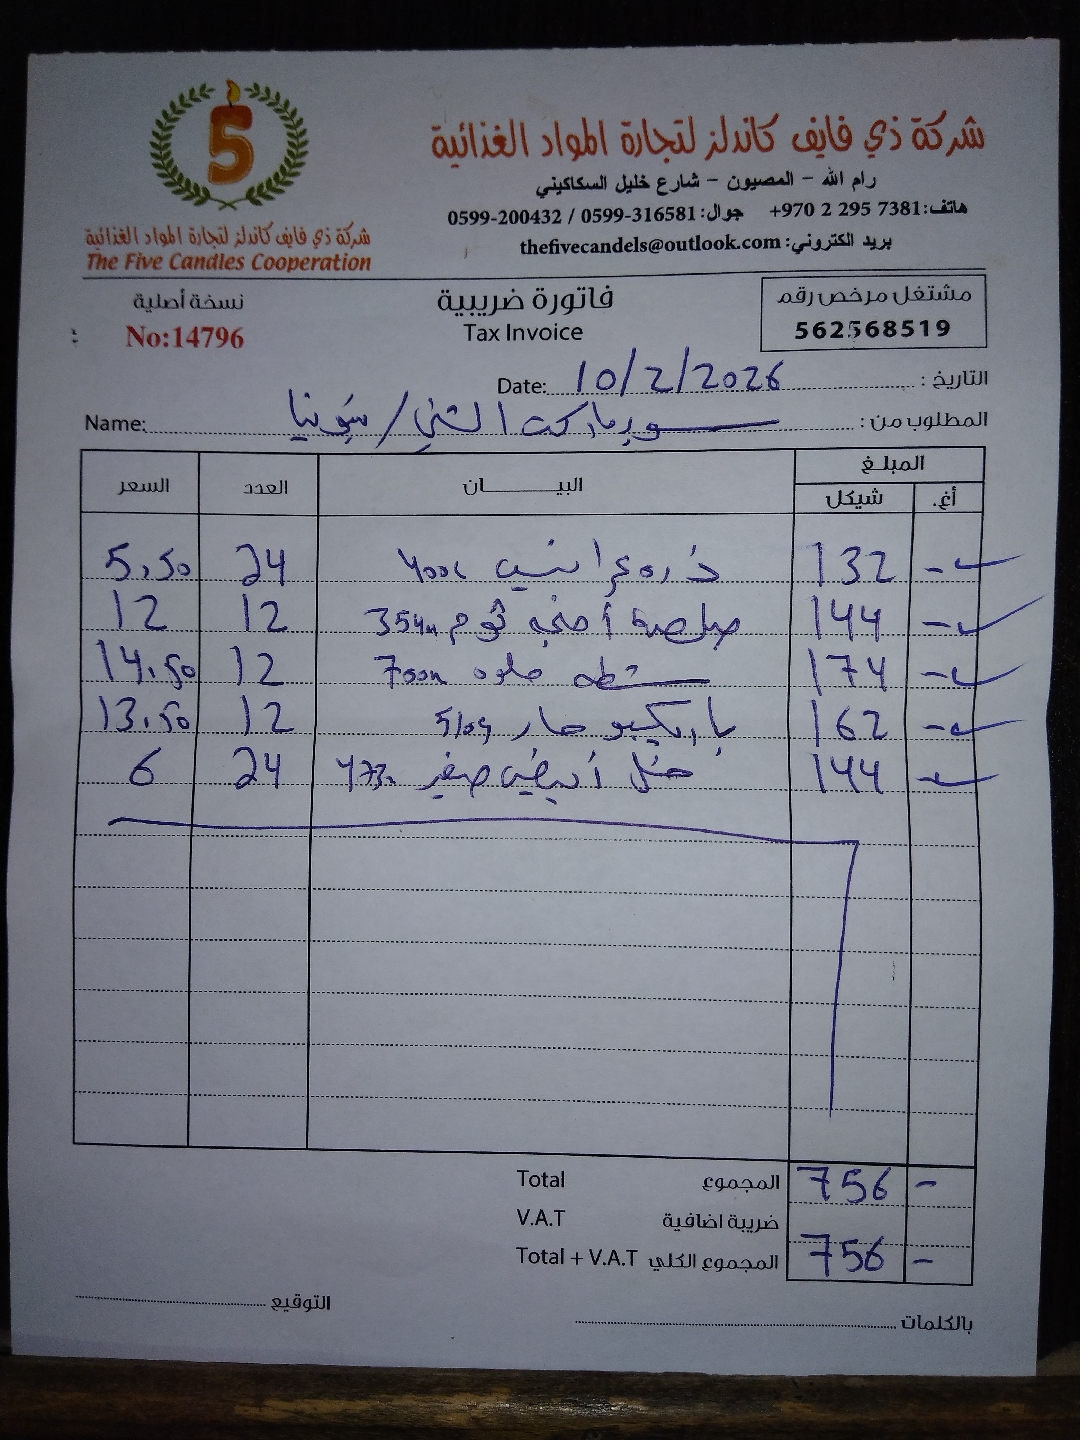 شركة ذي فايف كاندلز لتجارة المواد الغذائية
رام الله - المصيون - شارع خليل السكاكيني
هاتف: +970 2 295 7381 جوال: 0599-316581 / 0599-200432
بريد الكتروني: thefivecandels@outlook.com
5
شركة ذي فايف كاندلز لتجارة المواد الغذائية
The Five Candles Cooperation
مشتغل مرخص رقم
562568519
فاتورة ضريبية
Tax Invoice
نسخة أصلية
No:14796
التاريخ : 10/2/2026 Date:
المطلوب من : سوبرماركت الشني / سونيا Name:
المبلغ البيـــــان العدد السعر
أغ. شيكل
- 132 ذره 24 5,50
- 144 صلصة ثوم 354 12 12
- 174 شطه حلوه 700 12 14.50
- 162 باربكيو حار 510 12 13.50
- 144 خل أبيض صغير 473 24 6
المجموع Total 756 -
ضريبة اضافية V.A.T
المجموع الكلي Total + V.A.T 756 -
التوقيع
بالكلمات